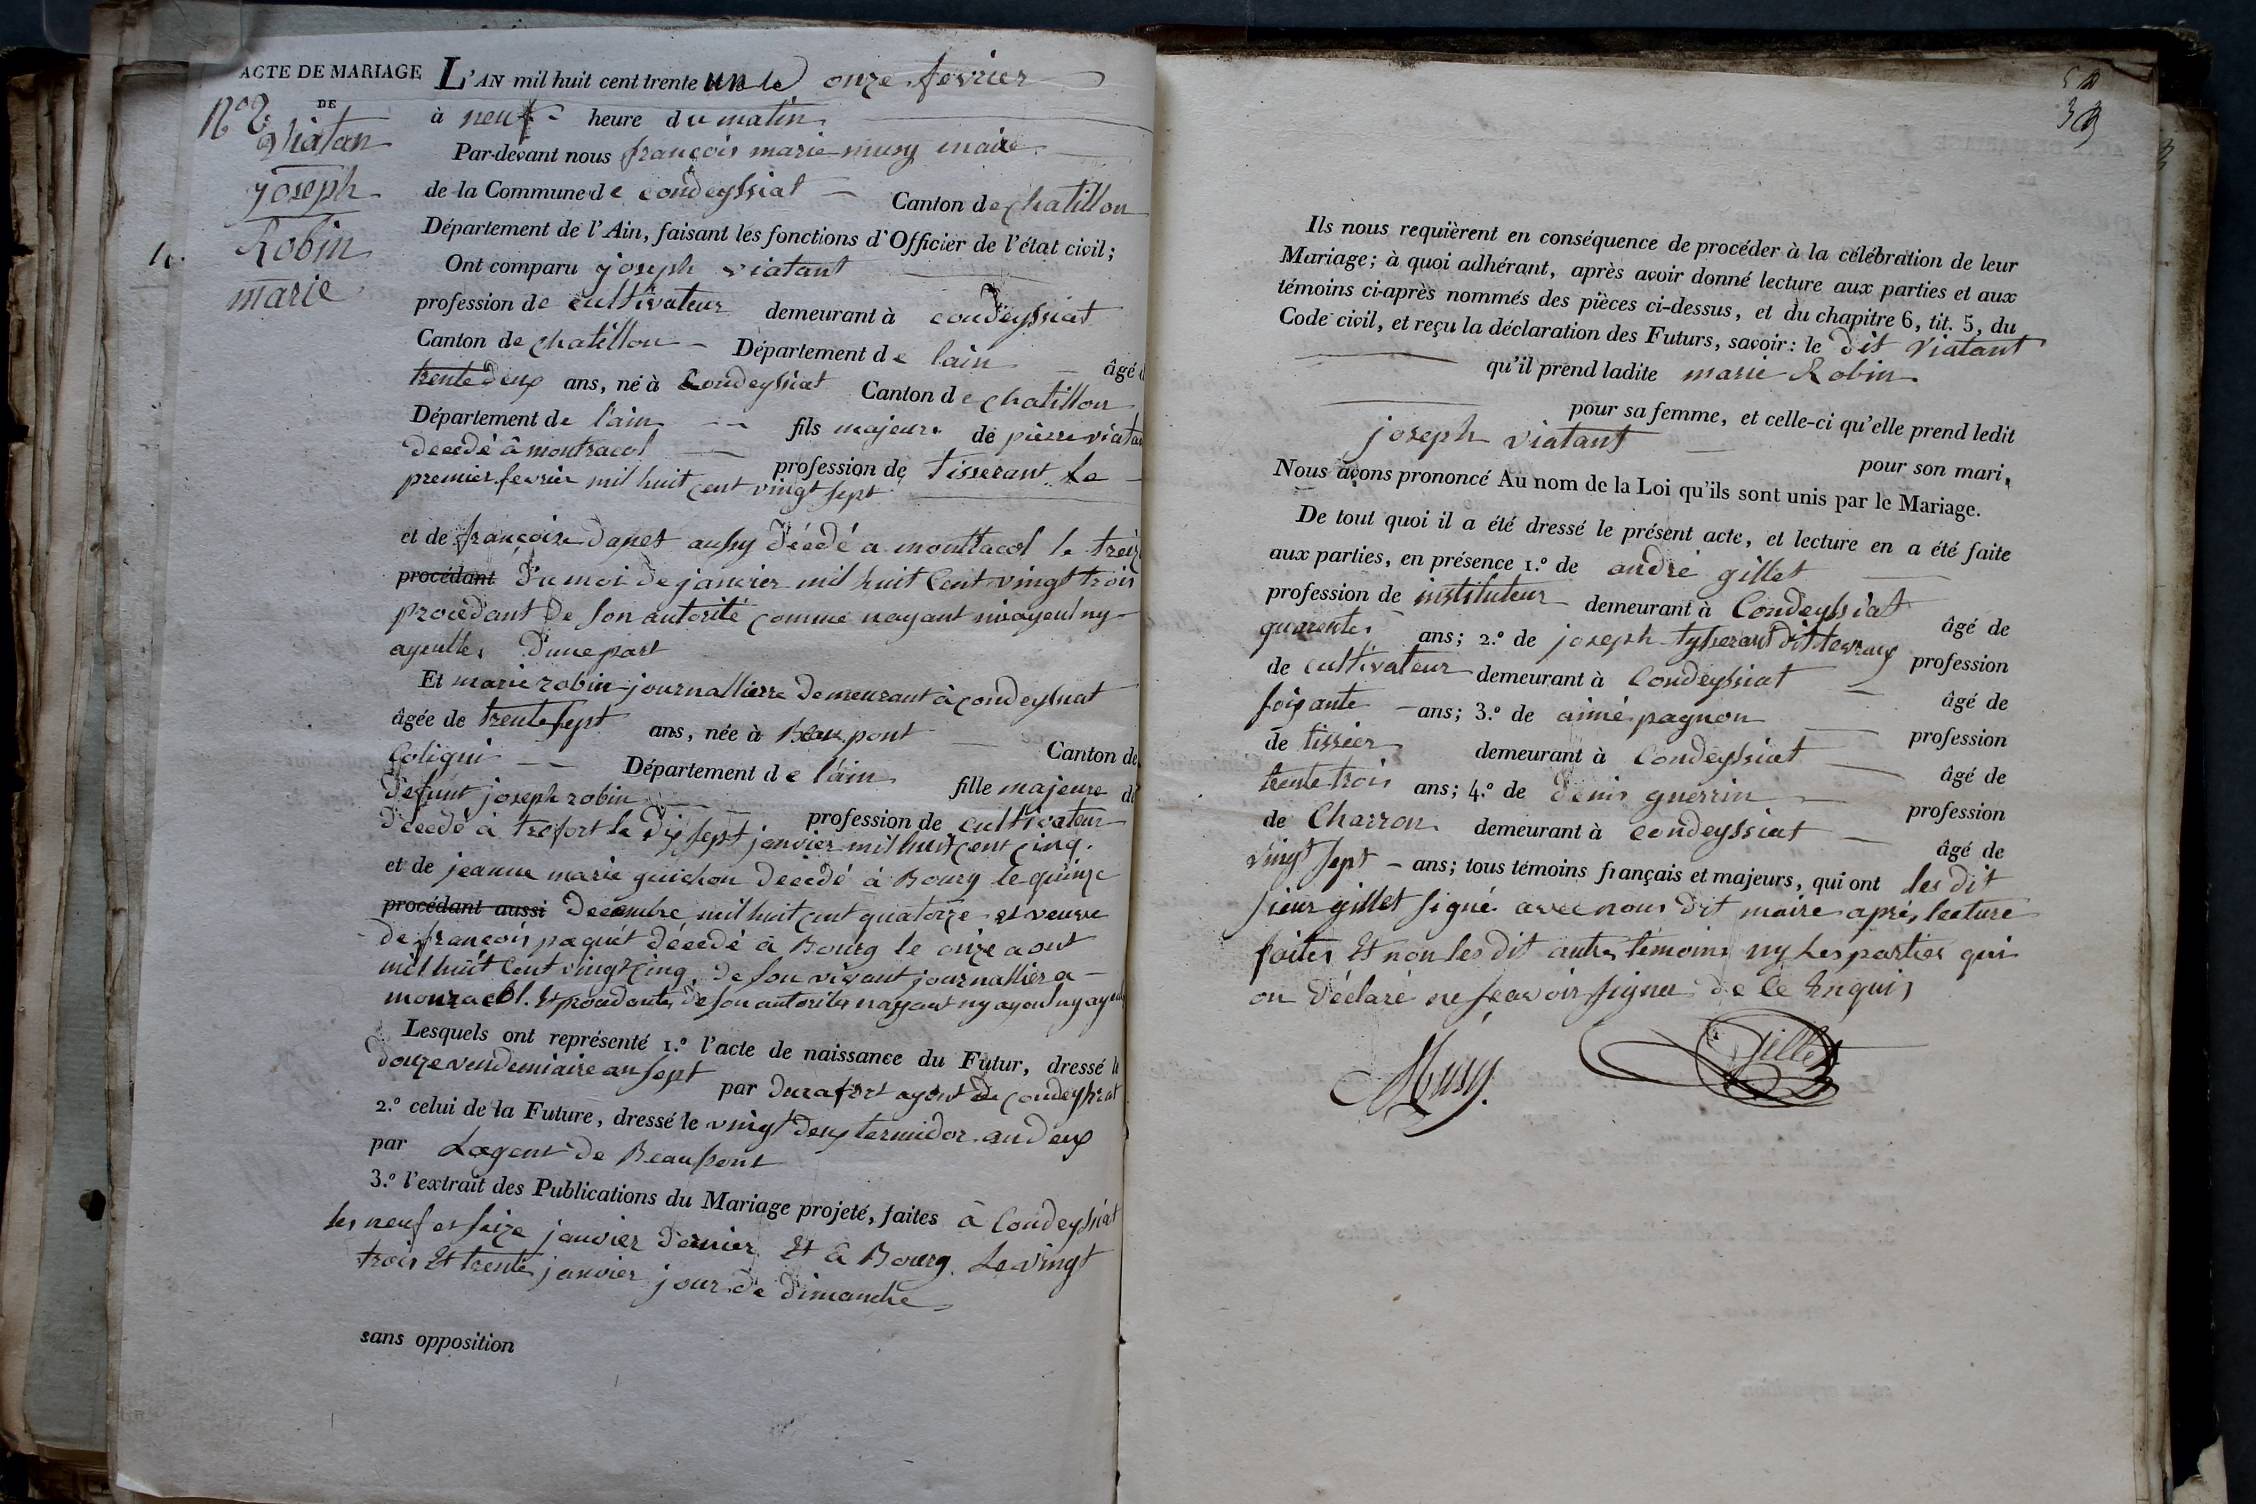 ACTE DE MARIAGE
DE
N.º 2
Viatan
joseph
Robin
marie
L'AN mil huit cent trente un le onze fevrier
à neuf heure du matin
Par-devant nous françois marie musy maire
de la Commune de condeyssiat Canton de chatillon
Département de l'Ain, faisant les fonctions d'Officier de l'état civil;
Ont comparu joseph viatant
profession de cultivateur demeurant à condeyssiat
Canton de chatillon Département de lain âgé d
trente deux ans, né à Condeyssiat Canton de chatillon
Département de l'ain fils majeur de pierre viatan
décédé à montracol profession de tisserant le
premier fevrier mil huit cent vingt sept
et de françoise danet aussy décédé a montracol le treize
procédant du moi de janvier mil huit cent vingt trois
procedant de son autorité comme nayant ni ayeul ny
ayeulle, d'une part
Et marie robin journallierre demeurant à condeyssiat
âgée de trente sept ans, née à Beaupont Canton de
Coligni Département de l'ain fille majeure de
defunt joseph robin profession de cultivateur
décédé à trefort le dix sept janvier mil huit cent cinq.
et de jeanne marie guichon décédé à Bourg le quinze
procédant aussi decembre mil huit cent quatorze et veuve
de françois paquet décédé à Bourg le onze aout
mil huit cent vingt cinq, de son vivant journallier a
monracol. Et procedante de son autorité nayant ny ayeul ny ayeul
Lesquels ont représenté 1.º l'acte de naissance du Futur, dressé le
douze vendemiaire an sept par durafort agent de condeyssiat
2.º celui de la Future, dressé le vingt deux termidor an deux
par Lagent de Beaupont
3.º l'extrait des Publications du Mariage projeté, faites à Condeyssiat
les neuf et seize janvier dernier Et à Bourg Le vingt
trois Et trente janvier jour de dimanche
sans opposition
Ils nous requièrent en conséquence de procéder à la célébration de leur
Mariage; à quoi adhérant, après avoir donné lecture aux parties et aux
témoins ci-après nommés des pièces ci-dessus, et du chapitre 6, tit. 5, du
Code civil, et reçu la déclaration des Futurs, savoir: le dit Viatant
qu'il prend ladite marie Robin
pour sa femme, et celle-ci qu'elle prend ledit
joseph viatant pour son mari,
Nous avons prononcé Au nom de la Loi qu'ils sont unis par le Mariage.
De tout quoi il a été dressé le présent acte, et lecture en a été faite
aux parties, en présence 1.º de andré gillet
profession de instituteur demeurant à Condeyssiat âgé de
quarente ans; 2.º de joseph tysserant dit profession
de cultivateur demeurant à Condeyssiat âgé de
soixante ans; 3.º de aimé pagnon profession
de tissier demeurant à Condeyssiat âgé de
trente trois ans; 4.º de denis guerrin profession
de Charron demeurant à condeyssiat âgé de
vingt sept ans; tous témoins français et majeurs, qui ont les dit
sieur gillet signé avec nous dit maire après lecture
faites Et non les dit autres temoins ny les parties qui
on déclaré ne scavoir signer de ce Enquis
Musy.
Gillet